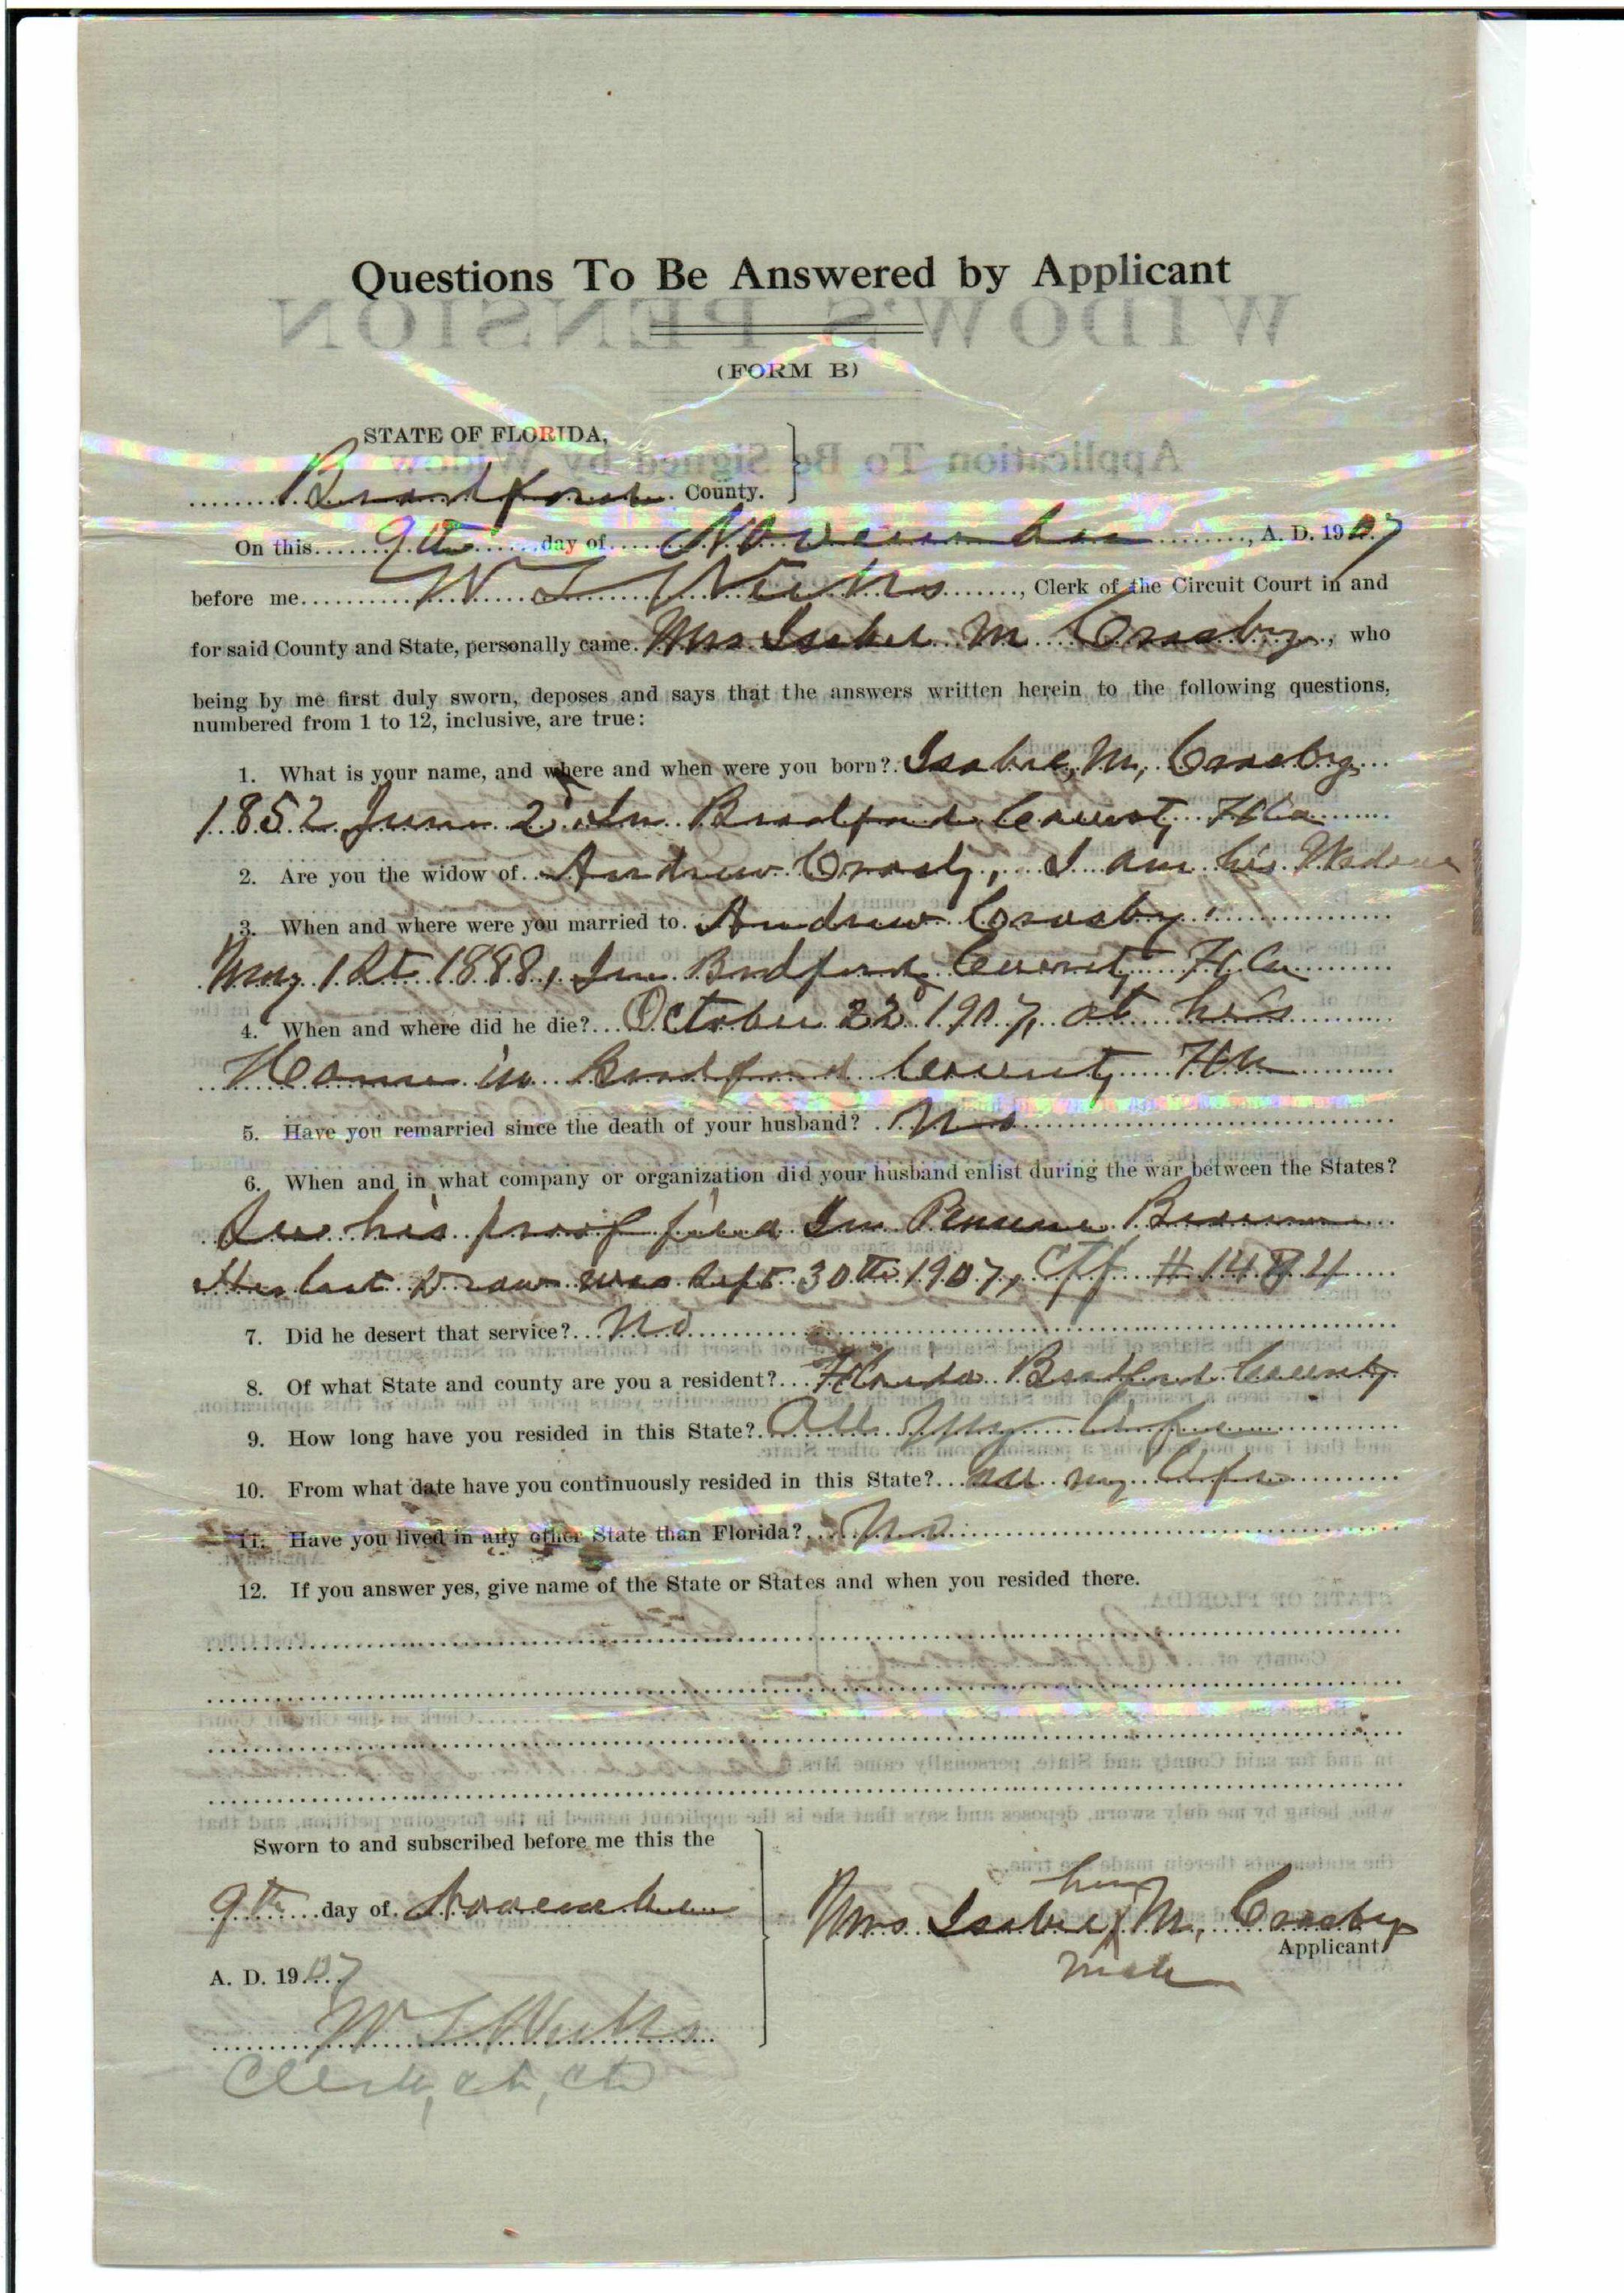 Questions To Be Answered by Applicant
WIDOW'S PENSION
(FORM B)
STATE OF FLORIDA,
Application To Be Signed by Widow
Bradford County.
On this 9th day of November, A. D. 1907
before me W T Weeks, Clerk of the Circuit Court in and
for said County and State, personally came Mrs Isabel M Crosby, who
being by me first duly sworn, deposes and says that the answers written herein to the following questions,
numbered from 1 to 12, inclusive, are true:
1. What is your name, and where and when were you born? Isabel M, Crosby
1852 June 2d In Bradford County Fla
2. Are you the widow of Andrew Crosby, I am his Widow
3. When and where were you married to Andrew Crosby
May 1st 1888, In Bradford County Fla
4. When and where did he die? October 22d 1907, at his
Home in Bradford County Fla
5. Have you remarried since the death of your husband? No
6. When and in what company or organization did your husband enlist during the war between the States?
See his proof filed In Pension Bureau
His last Draw was Sept 30th 1907, Ctf #
7. Did he desert that service? No
8. Of what State and county are you a resident? Florida Bradford County
9. How long have you resided in this State? All my life
10. From what date have you continuously resided in this State? all my life
11. Have you lived in any other State than Florida? No
12. If you answer yes, give name of the State or States and when you resided there.
Sworn to and subscribed before me this the
9th day of November
A. D. 1907
W T Weeks
Clerk, Ct, Ct
her
Mrs Isabel X M, Crosby
Applicant
mark